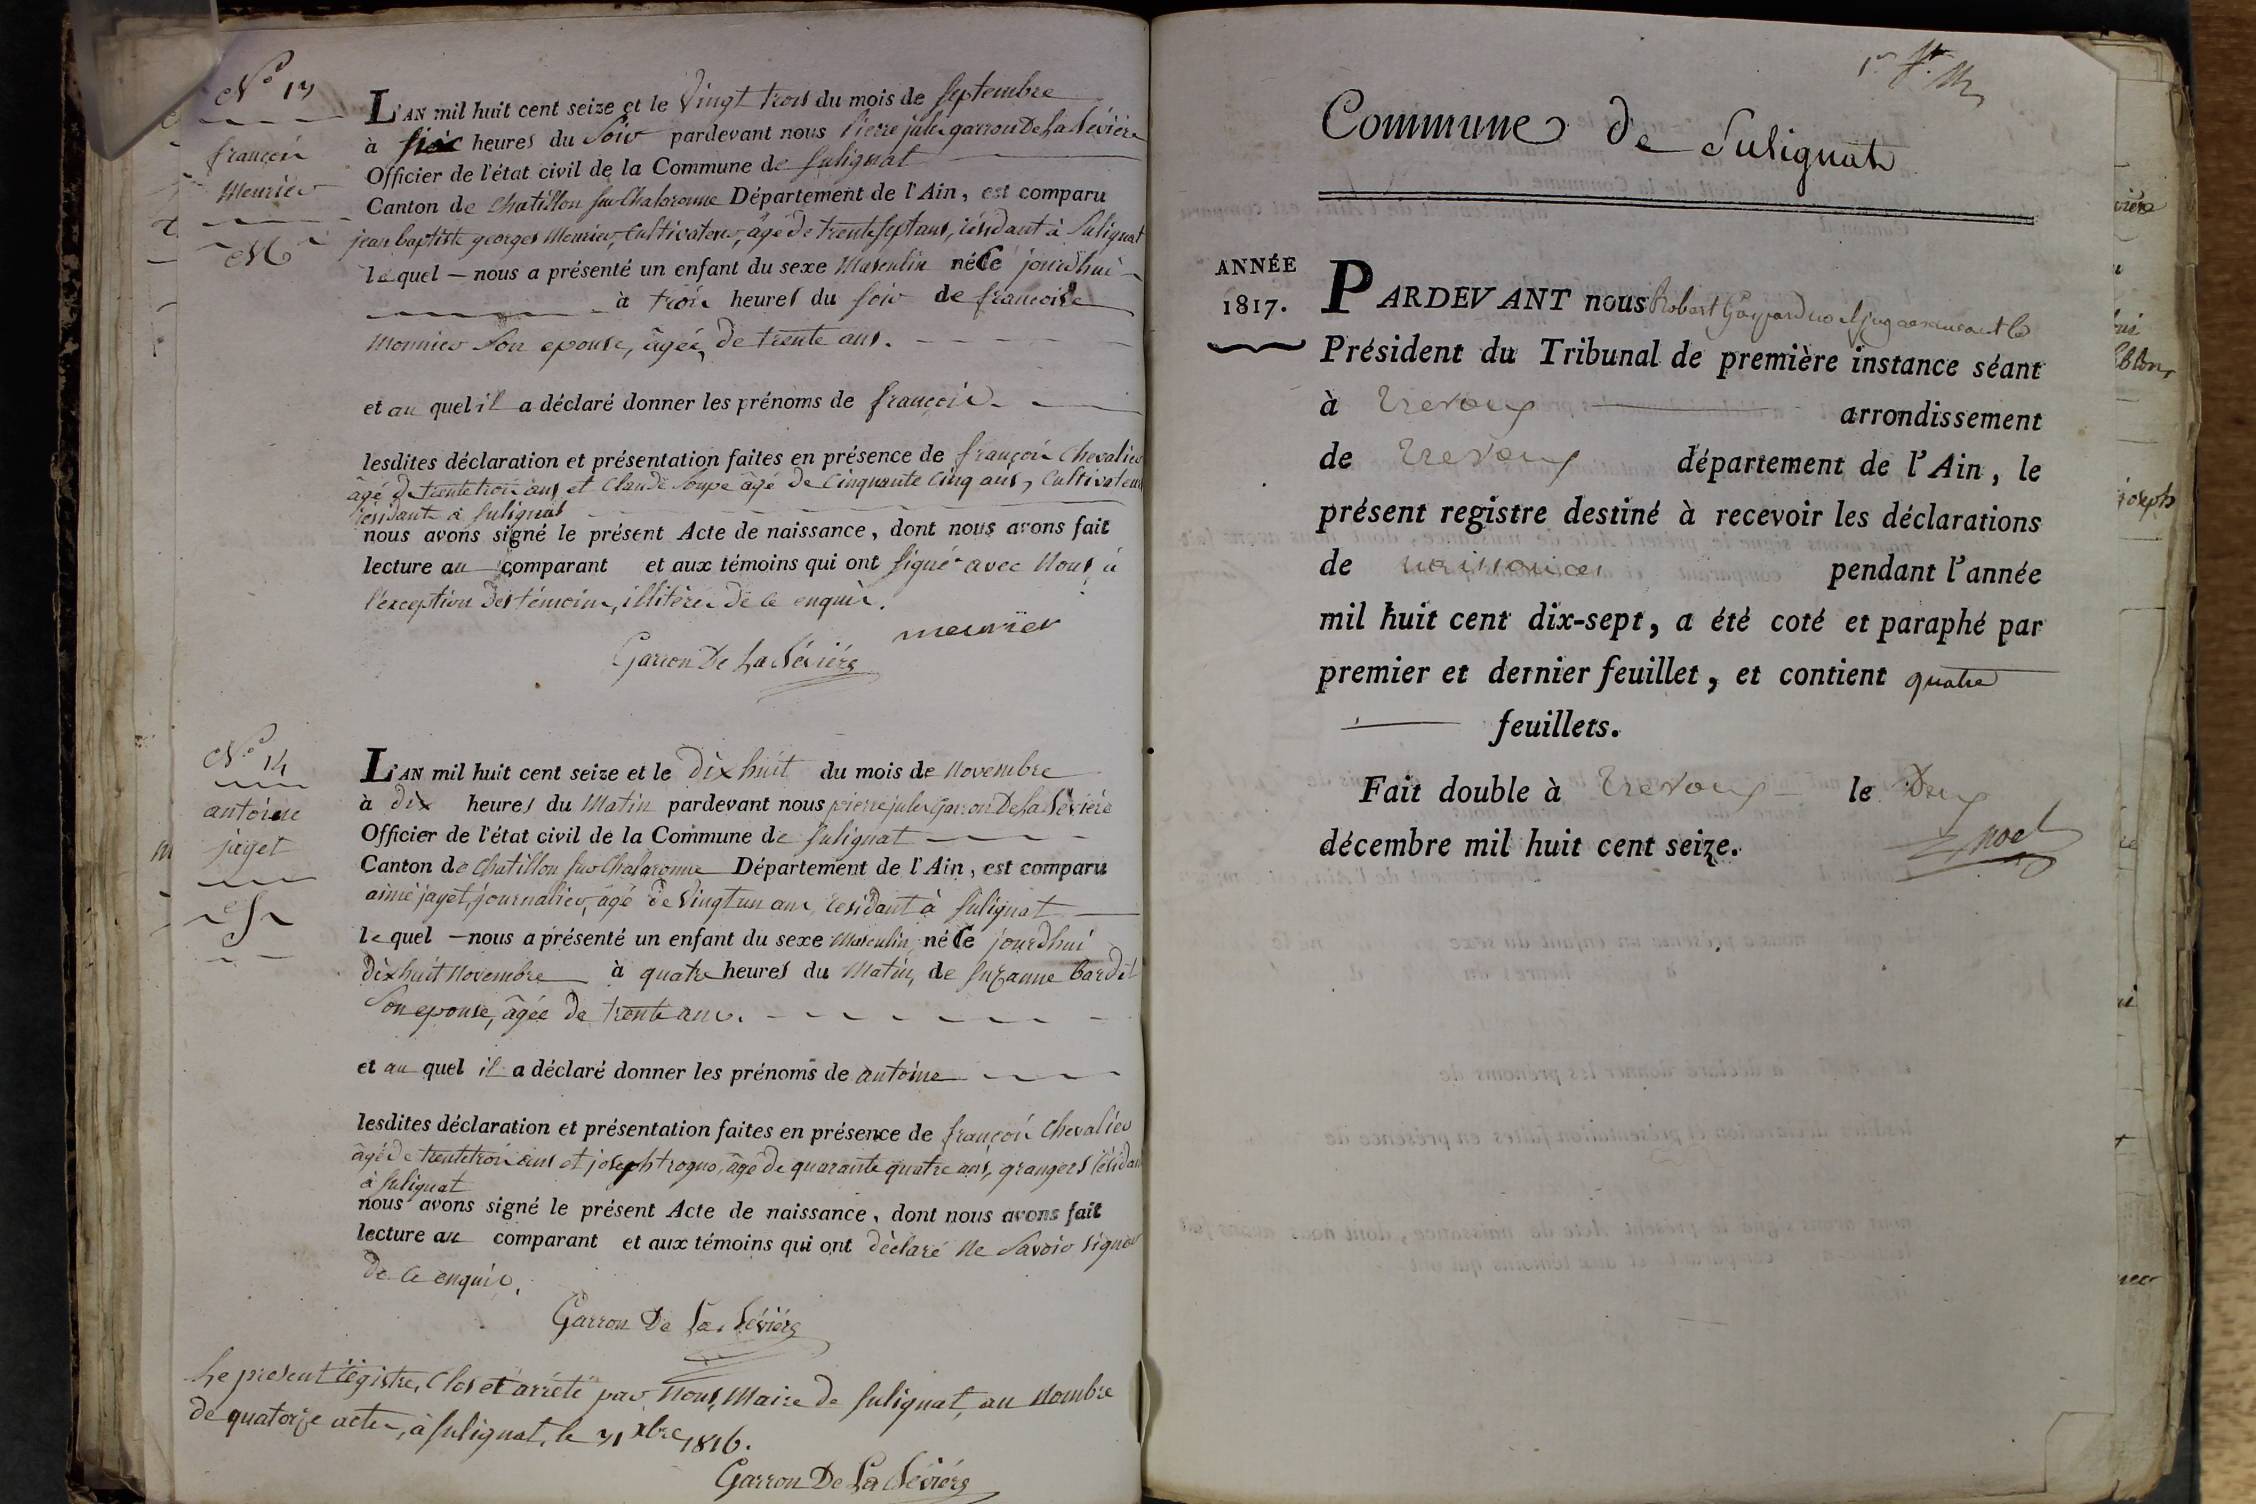 No 13
françois
Meunier
M
L'AN mil huit cent seize et le Vingt trois du mois de septembre
à six heures du Soir pardevant nous Pierre jules garron De La Sévière
Officier de l'état civil de la Commune de Sulignat
Canton de Chatillon sur Chalaronne Département de l'Ain, est comparu
jean baptiste georges Meunier, Cultivateur, âgé de trente sept ans, résidant à Sulignat
le quel — nous a présenté un enfant du sexe Masculin né Ce jourdhui
à trois heures du soir de francoise
monnier Son epouse, âgée de trente ans.
et au quel il a déclaré donner les prénoms de françois.
lesdites déclaration et présentation faites en présence de françois Chevalier
âgé de trente trois ans et Claude Soupe âgé de Cinquante Cinq ans, Cultivateurs
résidants à Sulignat
nous avons signé le présent Acte de naissance, dont nous avons fait
lecture au comparant et aux témoins qui ont signé avec Nous à
l'exception des témoins, illitérés de ce enquis.
meunier
Garron De La Sévière
No 14
antoine
jayet
L'AN mil huit cent seize et le dix huit du mois de Novembre
à dix heures du Matin pardevant nous pierre jules Garron De La Sévière
Officier de l'état civil de la Commune de Sulignat
Canton de Chatillon sur Chalaronne Département de l'Ain, est comparu
aimé jayet, journalier, âgé de Vingt un ans, résidant à Sulignat
le quel — nous a présenté un enfant du sexe Masculin né Ce jourdhui
dix huit Novembre à quatre heures du Matin, de Suzanne bardet
Son epouse, âgée de trente ans.
et au quel il a déclaré donner les prénoms de antoine
lesdites déclaration et présentation faites en présence de françois Chevalier
âgé de trente trois ans et joseph trogno, âgé de quarante quatre ans, grangers résidants
à Sulignat
nous avons signé le présent Acte de naissance, dont nous avons fait
lecture au comparant et aux témoins qui ont déclaré Ne Savoir signer
de ce enquis.
Garron De La Sévière
Le present régistre, Clos et arrété par Nous, Maire de Sulignat, au Nombre
de quatorze actes, à Sulignat, le 31 xbre 1816.
Garron De La Sévière
Commune de Sulignat
ANNÉE
1817.
PARDEVANT nous Robert Gaspard noel juge exercant le
Président du Tribunal de première instance séant
à Trevoux arrondissement
de Trevoux département de l'Ain, le
présent registre destiné à recevoir les déclarations
de naissances pendant l'année
mil huit cent dix-sept, a été coté et paraphé par
premier et dernier feuillet, et contient quatre
feuillets.
Fait double à Trevoux le Deux
décembre mil huit cent seize.
noel